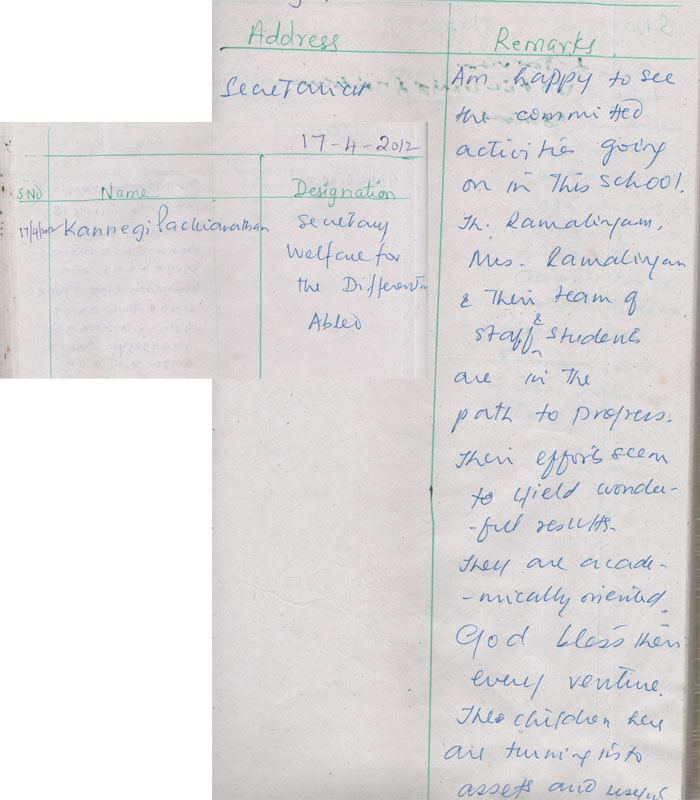 Address
Remarks
Secretariat
17-4-2012
S.NO Name Designation
17/4/2012 Kannegi Packianathan
Secretary
Welfare for
the Different
Abled
Am happy to see
the committed
activities going
on in This School.
Th. Ramalingam,
Mrs. Ramalingam
& Their team of
staff & students
are in the
path to progress.
Their efforts seem
to yield wonde-
-ful results.
They are acade-
-mically oriented.
God bless their
every venture.
The children here
are turning into
assets and useful